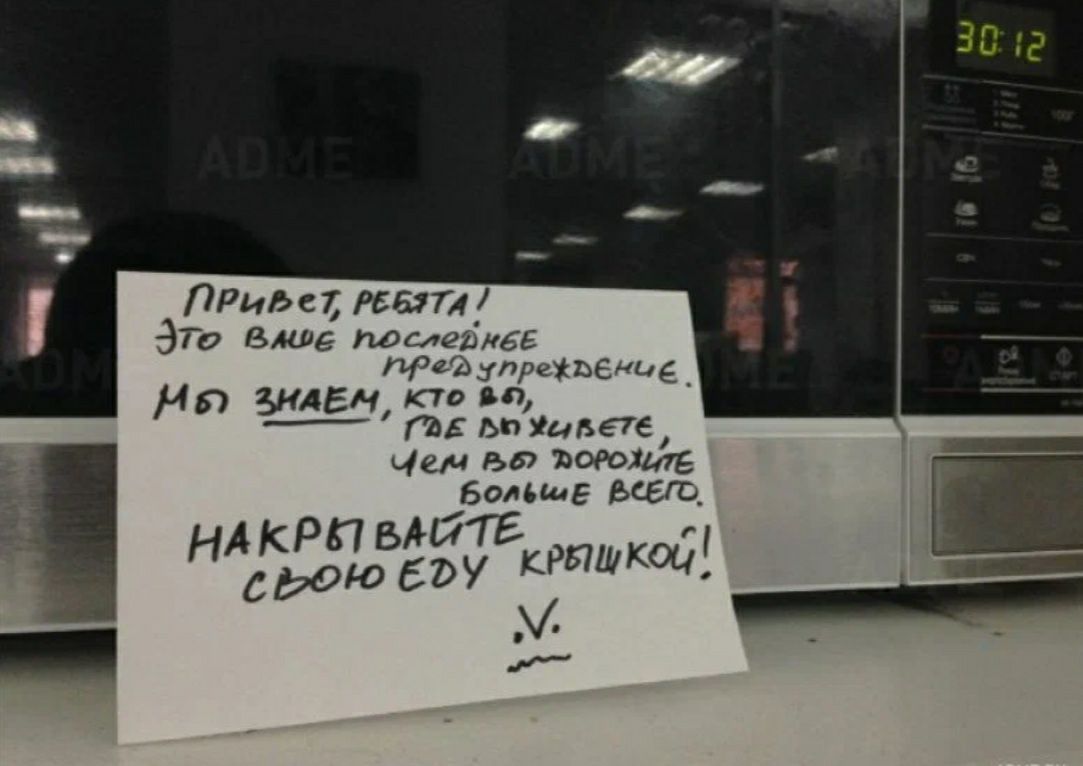 30:12
ADME ADME ADME
ПРИВЕТ, РЕБЯТА!
ЭТО ВАШЕ ПОСЛЕДНЕЕ
ПРЕДУПРЕЖДЕНИЕ.
МЫ ЗНАЕМ, КТО ВЫ,
ГДЕ ВЫ ЖИВЕТЕ,
ЧЕМ ВЫ ДОРОЖИТЕ
БОЛЬШЕ ВСЕГО.
НАКРЫВАЙТЕ
СВОЮ ЕДУ КРЫШКОЙ!
.V.